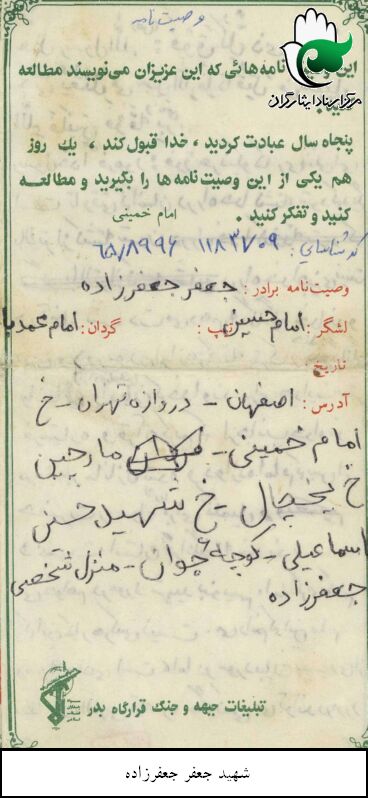 وصیت نامه
این نامه‌هائی که این عزیزان می‌نویسند مطالعه
مرکز اسناد ایثارگران
پنجاه سال عبادت کردید، خدا قبول کند، یک روز
هم یکی از این وصیت نامه‌ها را بگیرید و مطالعه
کنید و تفکر کنید.
امام خمینی
کد شناسایی: ۱۱۸۳۷۰۹ ۶۵/۸۹۹۶
وصیت‌نامه برادر: جعفر جعفرزاده
لشگر: امام حسین تیپ: گردان: امام محمد با
تاریخ:
آدرس: اصفهان - دروازه تهران - خ
امام خمینی - مارچین
خ یخچال - خ شهید حسن
اسماعیلی - کوچه جوان - منزل شخصی
جعفرزاده
تبلیغات جبهه و جنگ قرارگاه بدر
شهید جعفر جعفرزاده